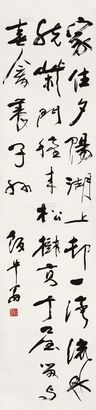 家住夕陽湖上邨一灣流水
繞柴門種来松樹高于屋留与
春禽養子孫 飯牛翁